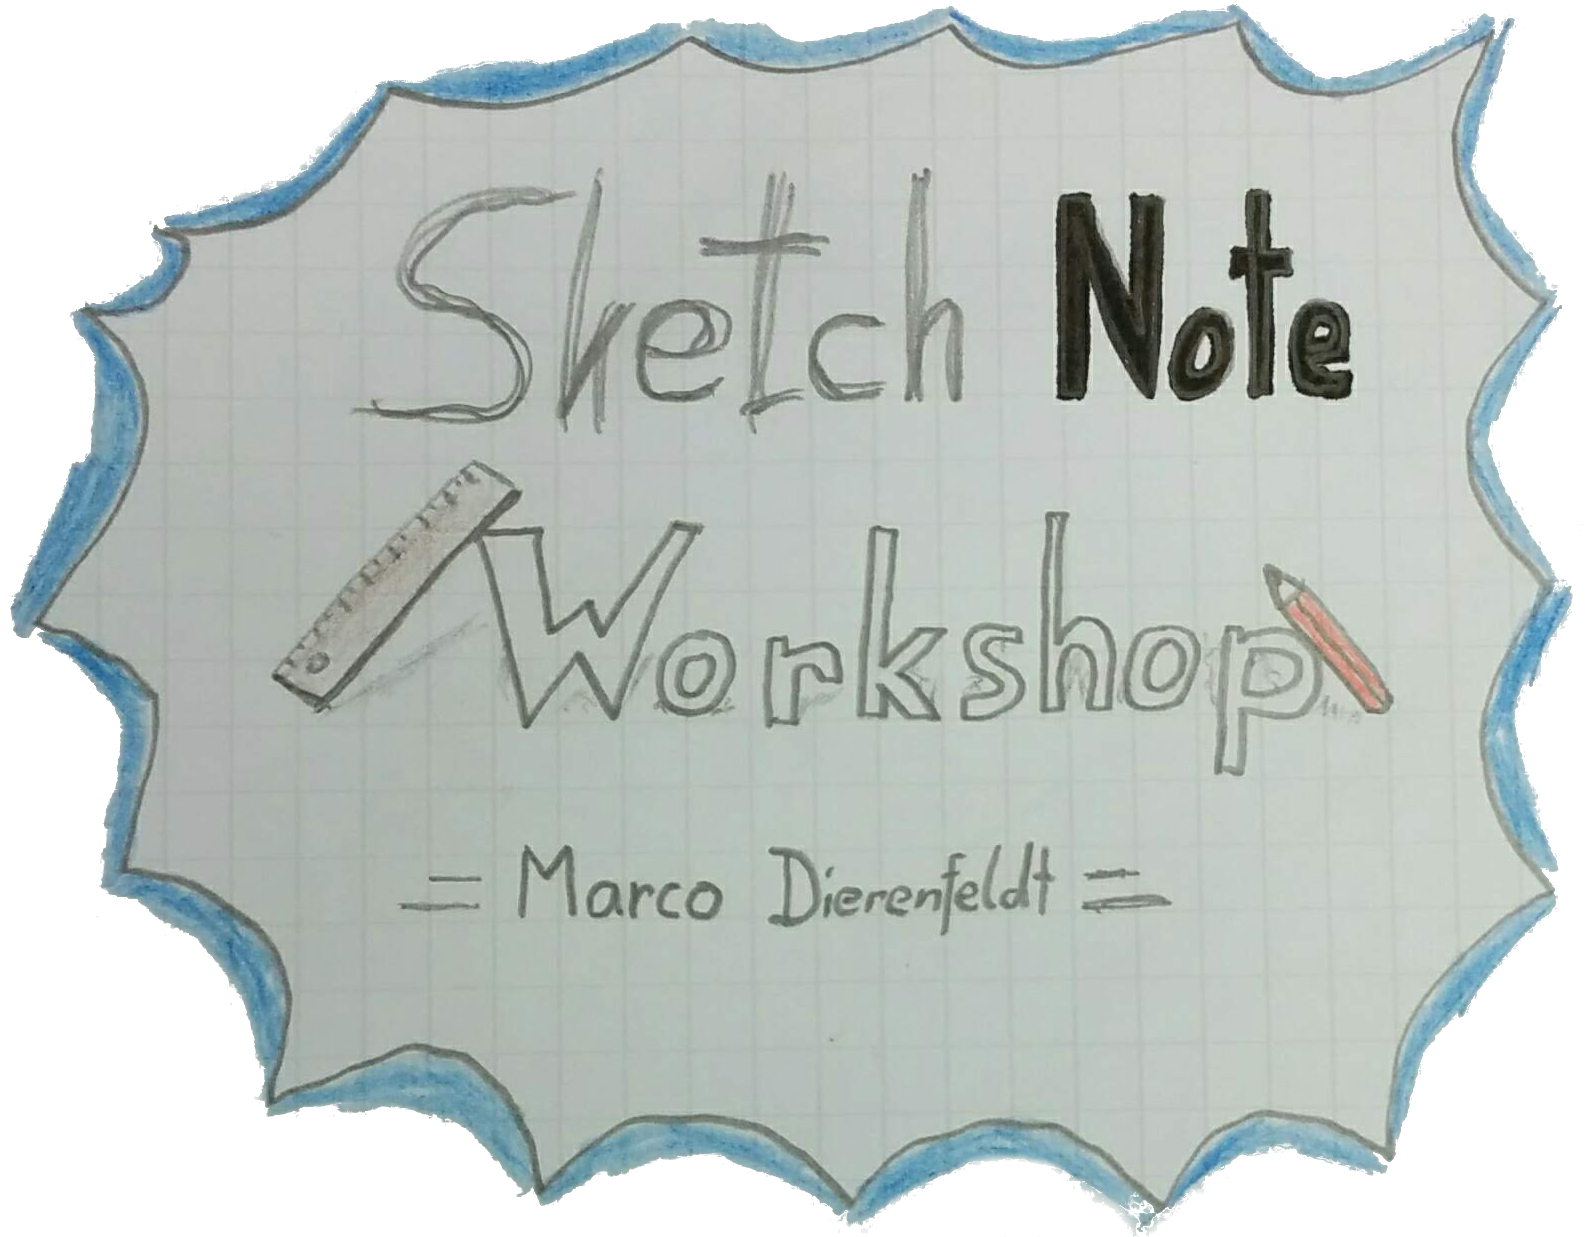 Sketch Note
Workshop
= Marco Dierenfeldt =